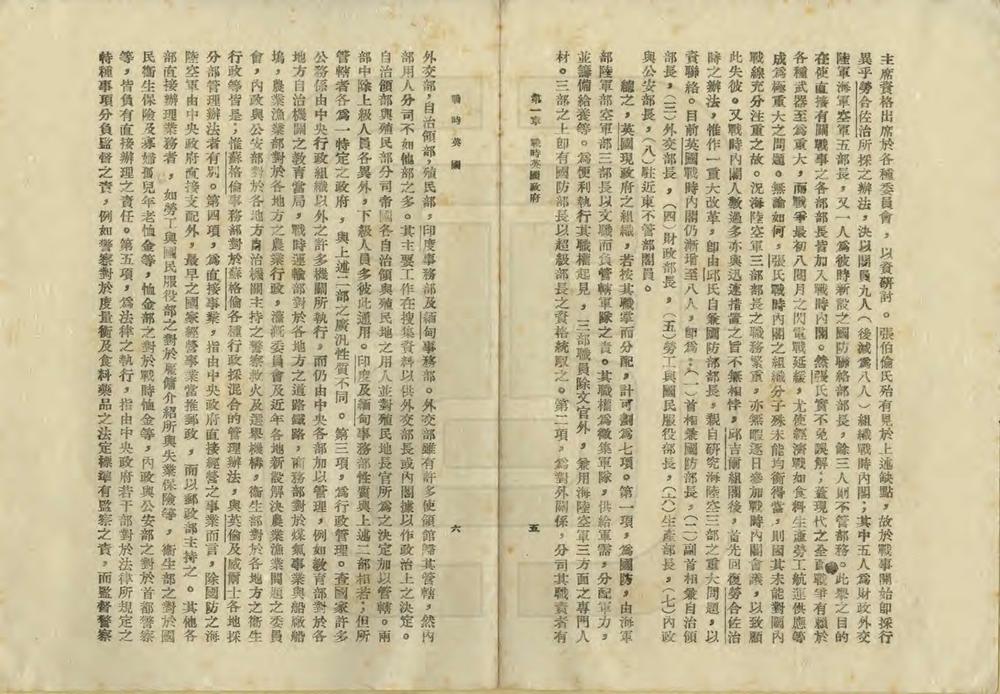 主席資格出席於各種委員會，以資研討。張伯倫氏殆有見於上述缺點，故於戰事開始卽採行
異乎勞合佐治所採之辦法，決以閣員九人（後減爲八人）組織戰時內閣；其中五人爲財政外交
陸軍海軍空軍五部長，又一人爲彼時新設之國防聯絡部部長，餘三人則不管部務。此舉之目的
在使直接有關戰事之各部部長皆加入戰時內閣。然張氏實不免誤解；蓋現代之全面戰爭有賴於
各種武器至爲重大，而戰爭最初八閱月之閃電戰延緩，尤使經濟戰如食料生產勞工航運供應等
成爲極重大之問題。無論如何，張氏戰時內閣之組織分子殊未能均衡得當，則因其未能對國內
戰線充分注重之故。況海陸空軍三部部長之職務繁重，亦無暇逐日參加戰時內閣會議，以致顧
此失彼。又戰時內閣人數過多亦與迅速措置之旨不無相悖，邱吉爾組閣後，首先回復勞合佐治
時之辦法，惟作一重大改革，卽由邱氏自兼國防部部長，親自研究海陸空三部之重大問題，以
資聯絡。目前英國戰時內閣仍漸增至八人，卽爲：（一）首相兼國防部長，（二）副首相兼自治領
部長，（三）外交部長，（四）財政部長，（五）勞工與國民服役部長，（六）生產部長，（七）內政
與公安部長，（八）駐近東不管部閣員。
總之，英國現政府之組織，若按其職掌而分配，計可劃爲七項。第一項，爲國防，由海軍
部陸軍部空軍部三部長以文職而負管轄軍隊之責。其職權爲徵集軍隊，供給軍需，分配軍力，
並籌備給養等。爲便利執行其職權起見，三部職員除文官外，兼用海陸空軍三方面之專門人
材。三部之上卽有國防部長以超級部長之資格統馭之。第二項，爲對外關係，分司其職責者有
第一章　戰時英國政府
五
戰時英國
六
外交部，自治領部，殖民部，印度事務部及緬甸事務部。外交部雖有許多使領館歸其管轄，然內
部用人分司不如他部之多。其主要工作在搜集資料以供外交部長或內閣據以作政治上之決定。
自治領部與殖民部分司帝國各自治領與殖民地之用人並對殖民地長官所爲之決定加以管轄。兩
部中除上級人員各異外，下級人員多彼此通用。印度及緬甸事務部性質與上述二部相若；但所
管轄者各爲一特定之政府，與上述二部之廣汎性質不同。第三項，爲行政管理。查國家許多
公務係由中央行政組織以外之許多機關所執行，而仍由中央各部加以管理，例如敎育部對於各
地方自治機關之敎育當局，戰時運輸部對於各地方之道路鐵路，商務部對於煤氣事業與船廠船
塢，農業漁業部對於各地方之農業行政，灌漑委員會及近年各地新設解決農業漁業問題之委員
會，內政與公安部對於各地方自治機關主持之警察救火及選舉機構，衞生部對於各地方之衞生
行政等皆是；惟蘇格倫事務部對於蘇格倫各種行政採混合的管理辦法，與英倫及威爾士各地採
分部管理辦法者有別。第四項，爲直接事業，指由中央政府直接經營之事業而言，除國防之海
陸空軍由中央政府直接支配外，最早之國家經營事業當推郵政，而以郵政部主持之。其他各
部直接辦理業務者，如勞工與國民服役部之對於雇傭介紹所與失業保險等，衞生部之對於國
民衞生保險及寡婦孤兒年老恤金等，恤金部之對於戰時恤金等，內政與公安部之對於首都警察
等，皆負有直接辦理之責任。第五項，爲法律之執行，指由中央政府若干部對於法律所規定之
特種事項分負監督之責，例如警察對於度量衡及食料藥品之法定標準有監察之責，而監督警察